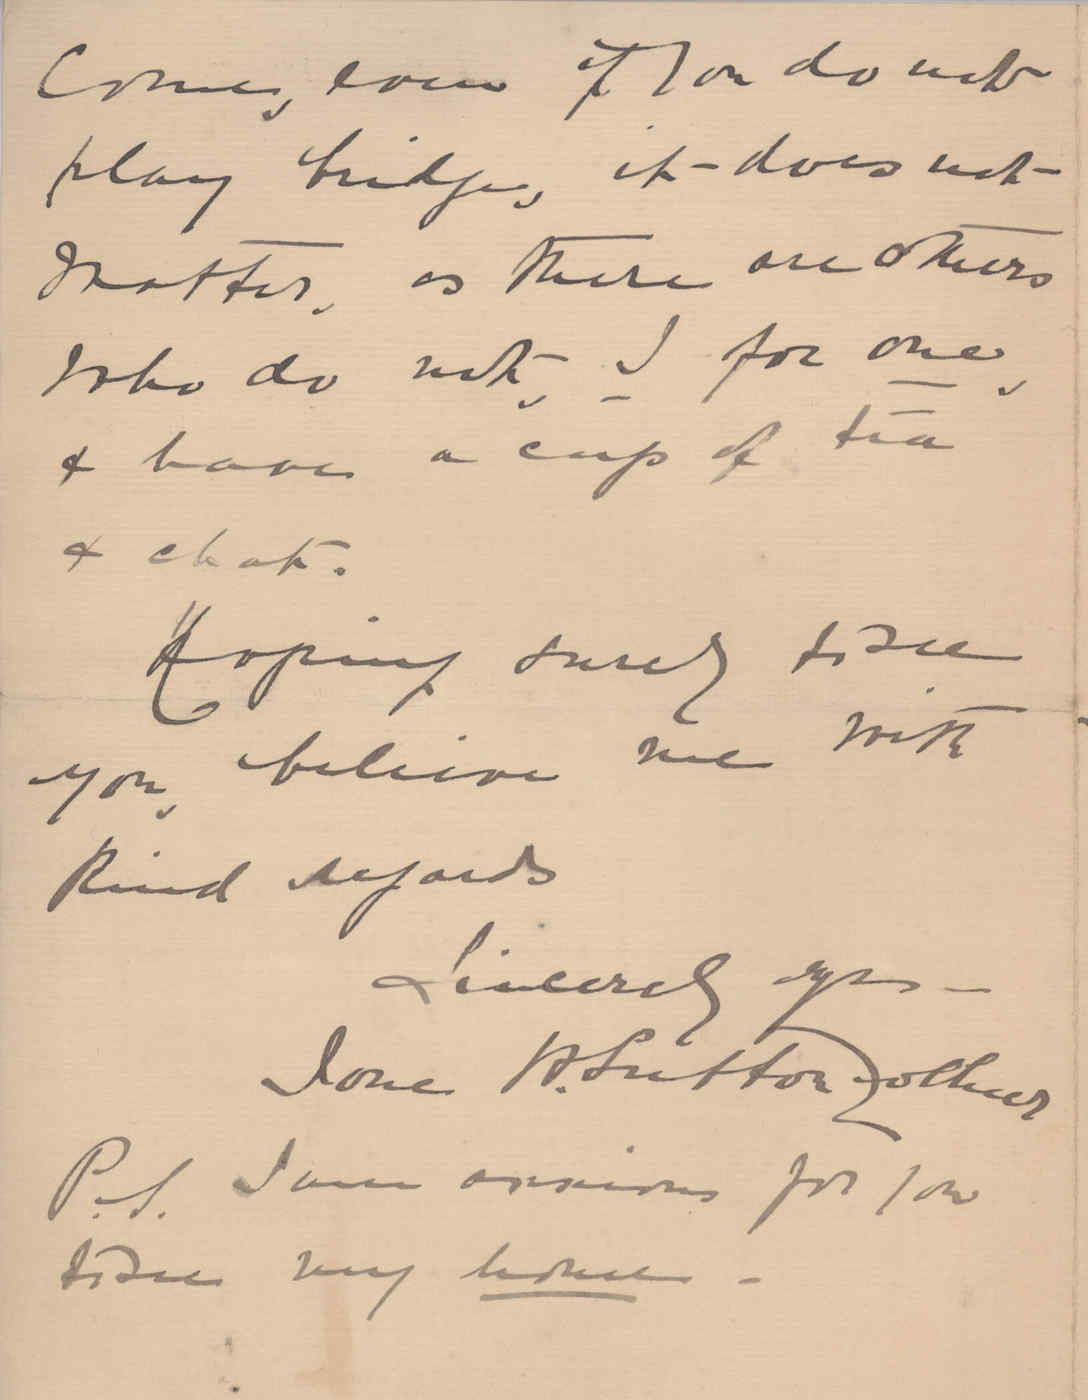 Come, even if you do not
play bridge, it does not
matter, as there are others
who do not, I for one,
& have a cup of tea
& chat.
Hoping surely to see
you, believe me with
kind regards
Sincerely yrs -
Ione H. Sutton Zollner
P.S. I am anxious for you
to see my home -